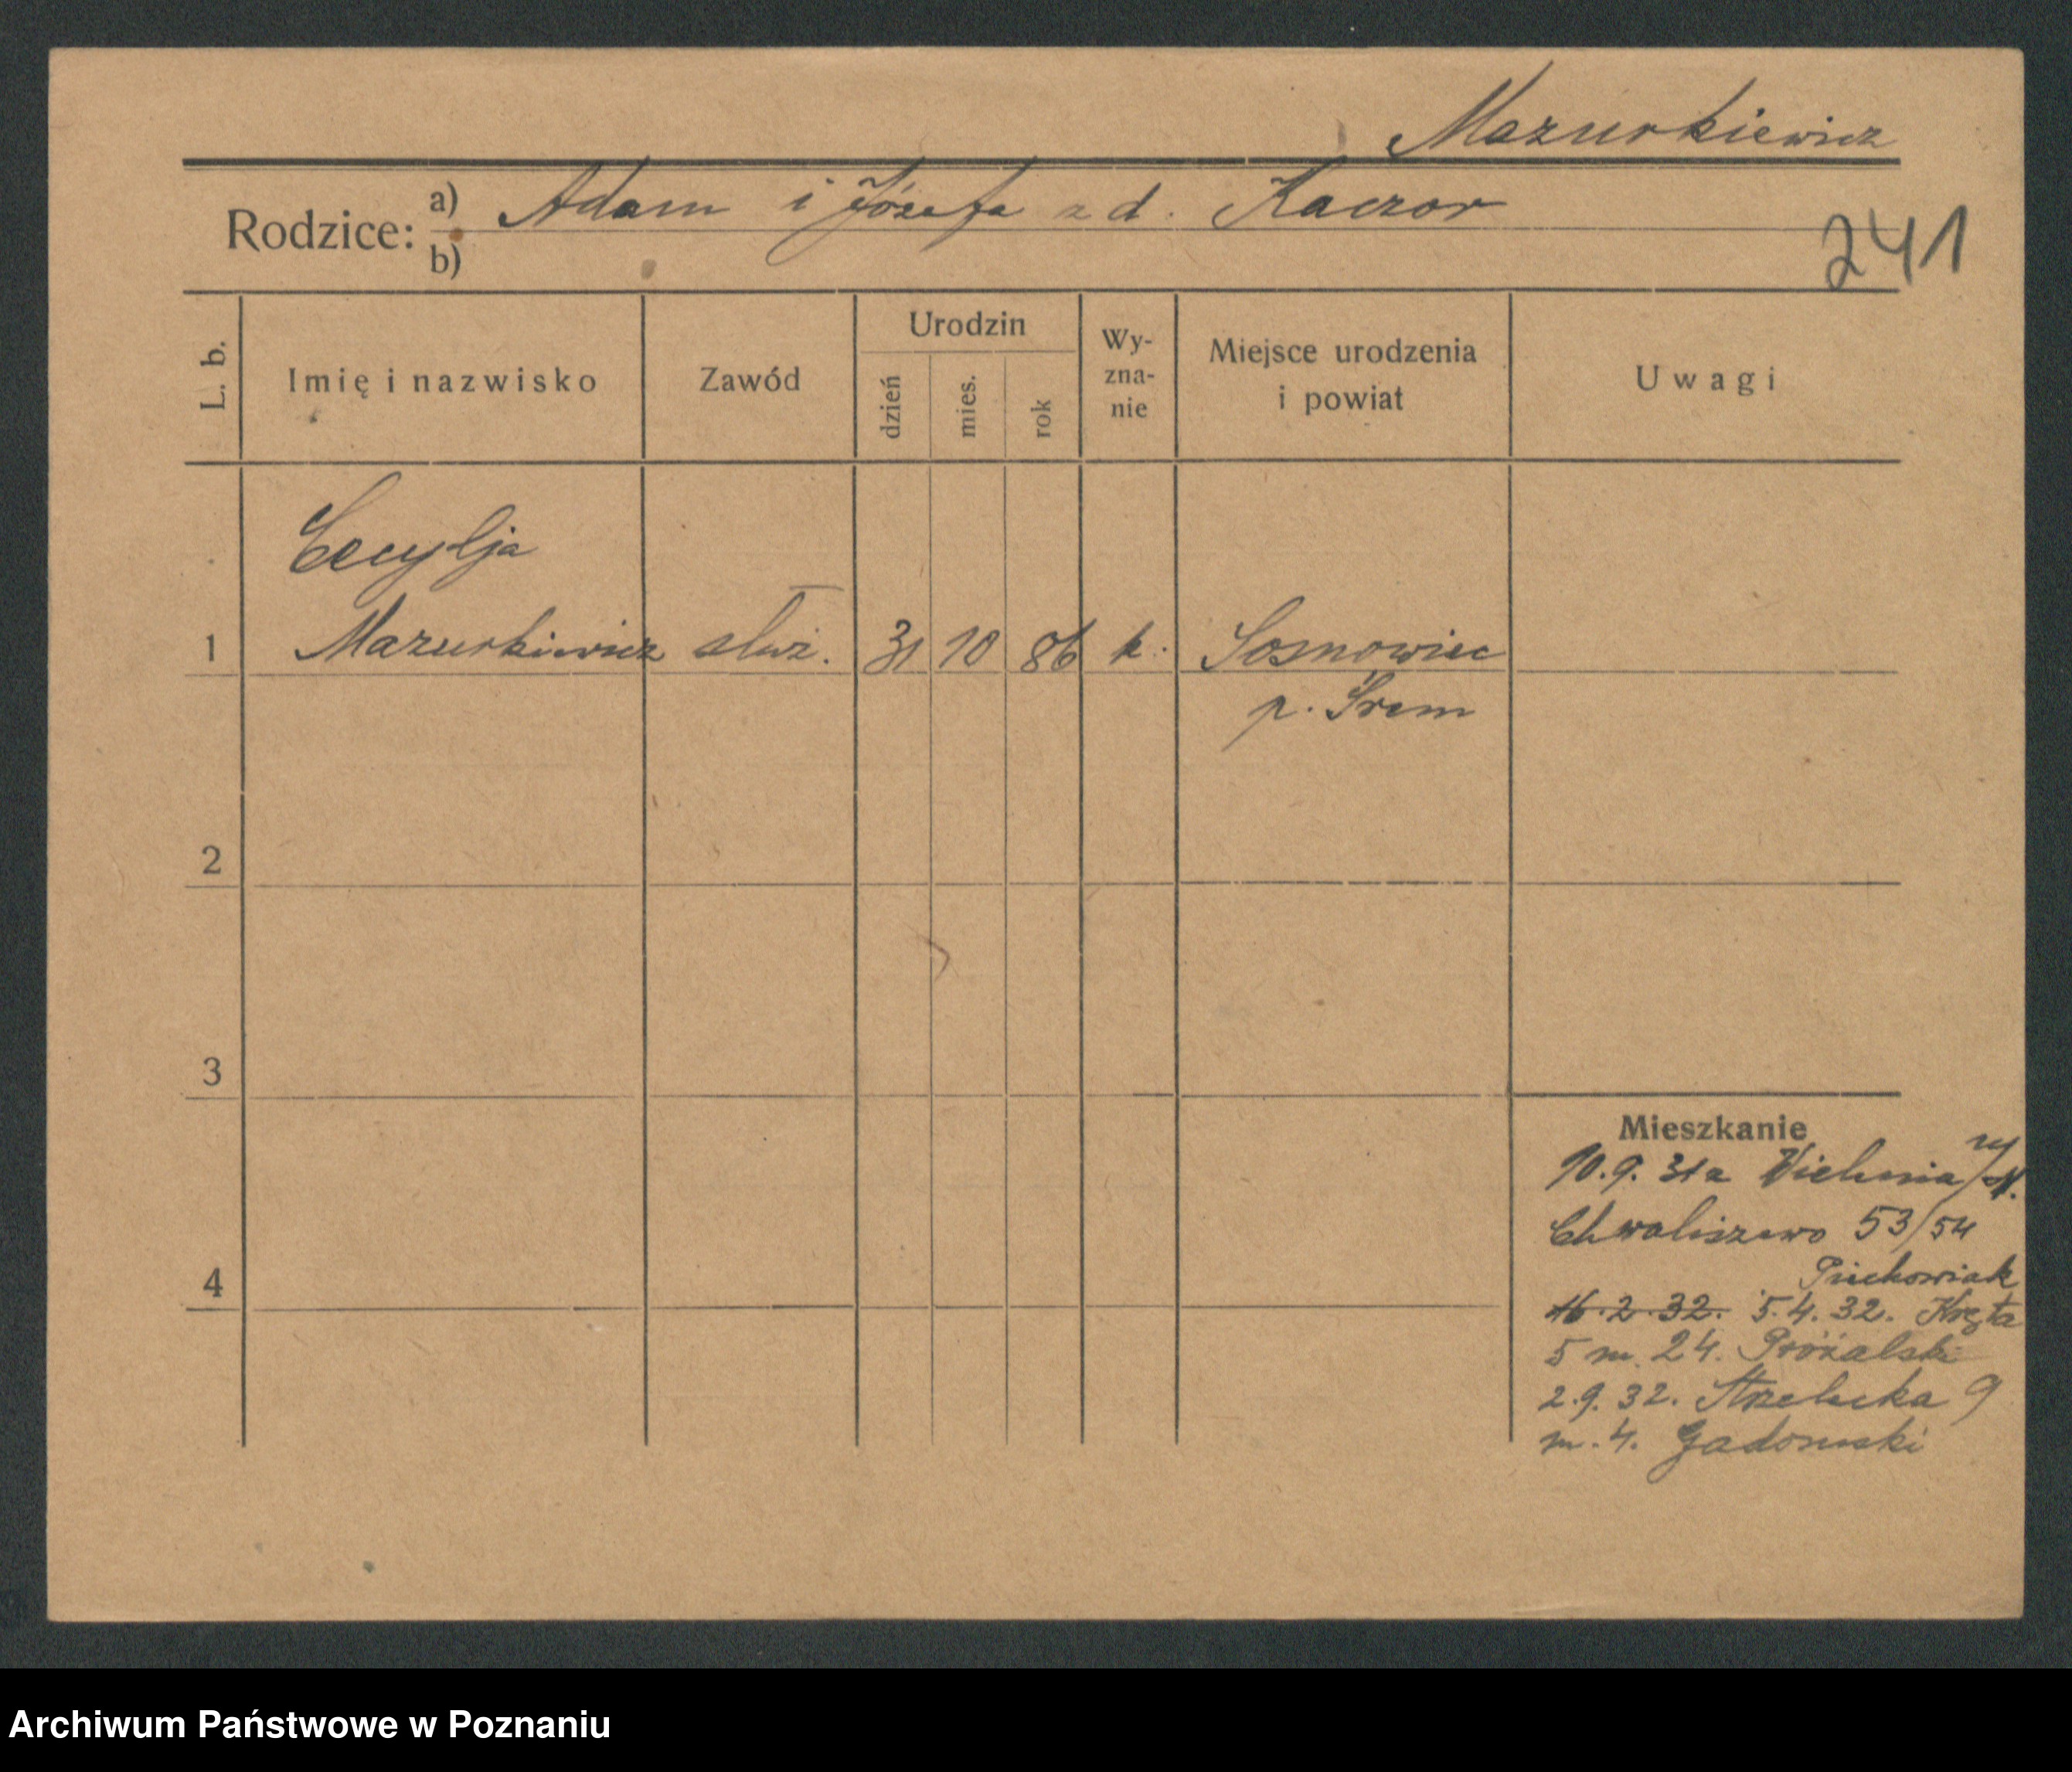 Mazurkiewicz
Rodzice: a) Adam i Józefa z d. Kaczor
b)
241
L. b.
Imię i nazwisko
Zawód
Urodzin
dzień
mies.
rok
Wy-
zna-
nie
Miejsce urodzenia
i powiat
Uwagi
Cecylja
1 Mazurkiewicz służ. 31 10 86 k. Sosnowiec
p. Śrem
2
3
4
Mieszkanie
10.9.31 z
Chwaliszewo 53/54
Piechowiak
16.2.32. 5.4.32. Kręta
5 m. 24.
2.9.32. Strzelecka 9
m. 4. Gadomski
Archiwum Państwowe w Poznaniu